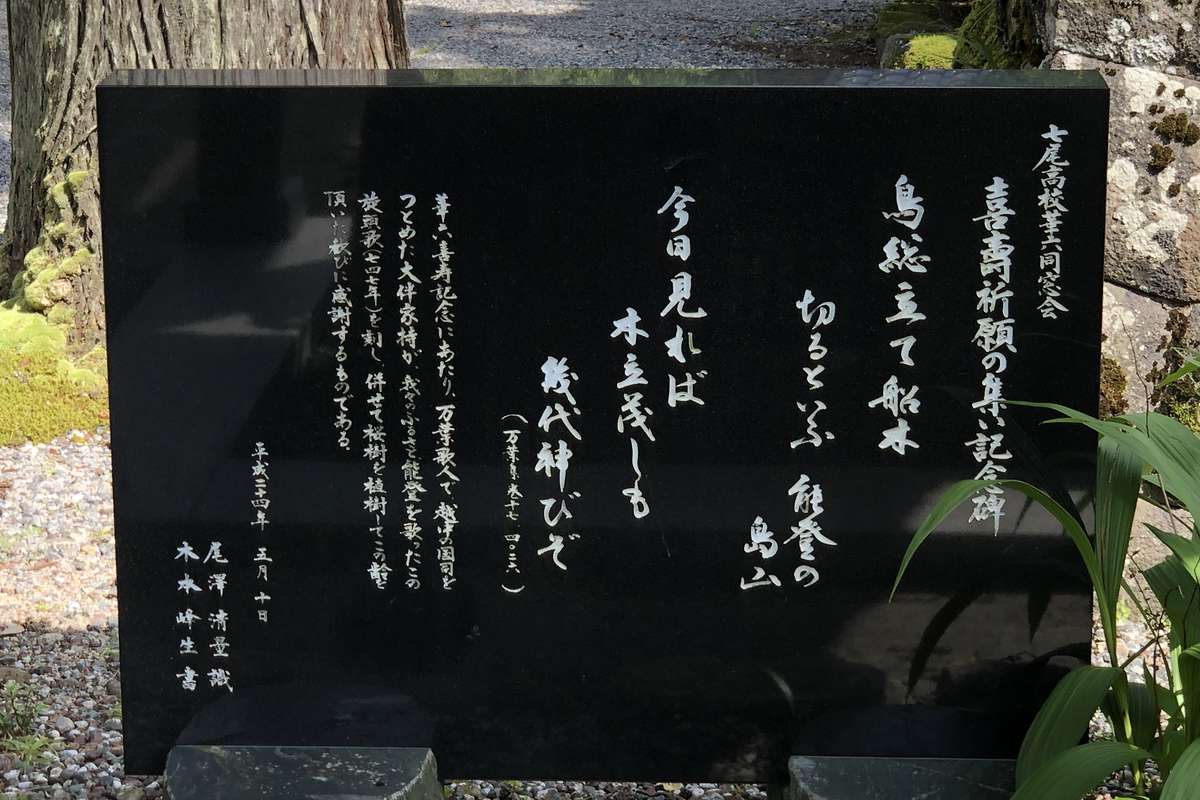 七尾高校華六同窓会
喜壽祈願の集い記念碑
鳥総立て船木
切るといふ 能登の
島山
今日見れば
木立茂しも
幾代神びぞ
(万葉集巻十七 四〇二六)
華六喜寿記念にあたり、万葉歌人で越中国司を
つとめた大伴家持が、我々のふるさと能登を歌ったこの
旋頭歌(七四七年)を刻し、併せて桜樹を植樹してこの齢を
頂いた歓びに感謝するものである。
平成二十四年 五月十日
尾澤清量 識
木本峰生 書